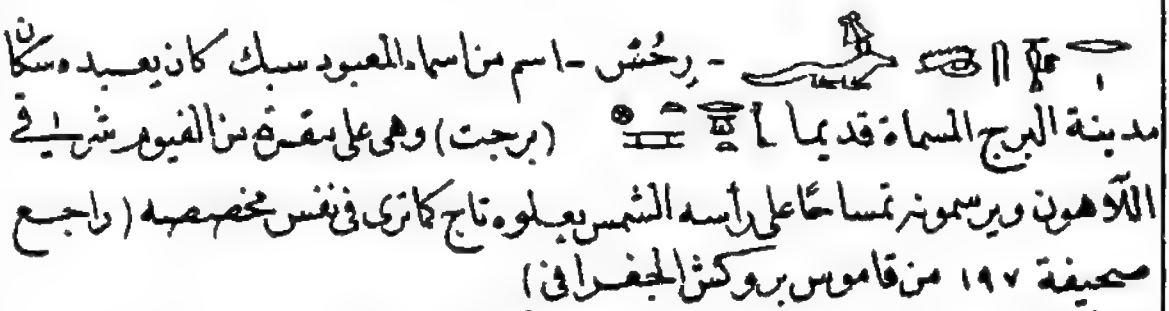 - رِخُسْ - اسم من اسماء المعبود سبك كان يعبده سكان
مدينة البرج المسماة قديما (برجت) وهى على مقربة من الفيوم شرقي
اللآهون ويرسمونه تمساحًا على رأسه الشمس يعلوه تاج كما ترى فى نفس مخصصه (راجع
صحيفة ١٩٧ من قاموس بروكش الجغرافى)